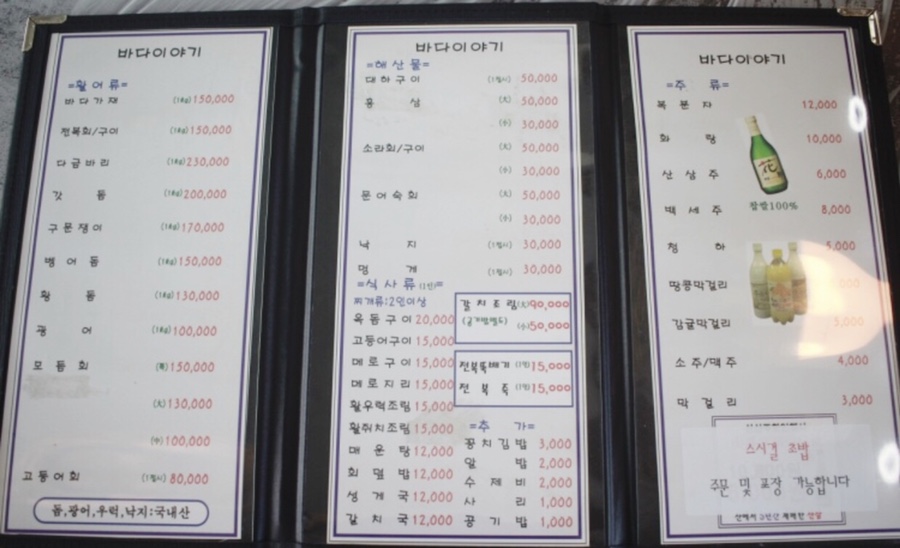 바다이야기
=활어류=
바다가재 (1kg) 150,000
전복회/구이 (1kg) 150,000
다금바리 (1kg) 230,000
갓돔 (1kg) 200,000
구문쟁이 (1kg) 170,000
뱅어돔 (1kg) 150,000
황돔 (1kg) 130,000
광어 (1kg) 100,000
모듬회 (特) 150,000
(大) 130,000
(中) 100,000
고등어회 (1접시) 80,000
돔,광어,우럭,낙지:국내산
바다이야기
=해산물=
대하구이 (1접시) 50,000
홍삼 (大) 50,000
(小) 30,000
소라회/구이 (大) 50,000
(小) 30,000
문어숙회 (大) 50,000
(小) 30,000
낙지 (1접시) 30,000
멍게 (1접시) 30,000
=식사류(1인)=
찌개류:2인이상
옥돔구이 20,000
고등어구이 15,000
메로구이 15,000
메로지리 15,000
활우럭조림 15,000
활쥐치조림 15,000
매운탕 12,000
회덮밥 12,000
성게국 12,000
갈치국 12,000
갈치조림 (大) 90,000
(小) 50,000
전복뚝배기 (1인) 15,000
전복죽 (1인) 15,000
=추가=
꽁치김밥 3,000
알밥 2,000
수제비 2,000
사리 1,000
공기밥 1,000
바다이야기
=주류=
복분자 12,000
화랑 10,000
산상주 6,000
찹쌀100%
백세주 8,000
청하 5,000
땅콩막걸리
감귤막걸리
소주/맥주 4,000
막걸리 3,000
스시결 초밥
주문 및 포장 가능합니다